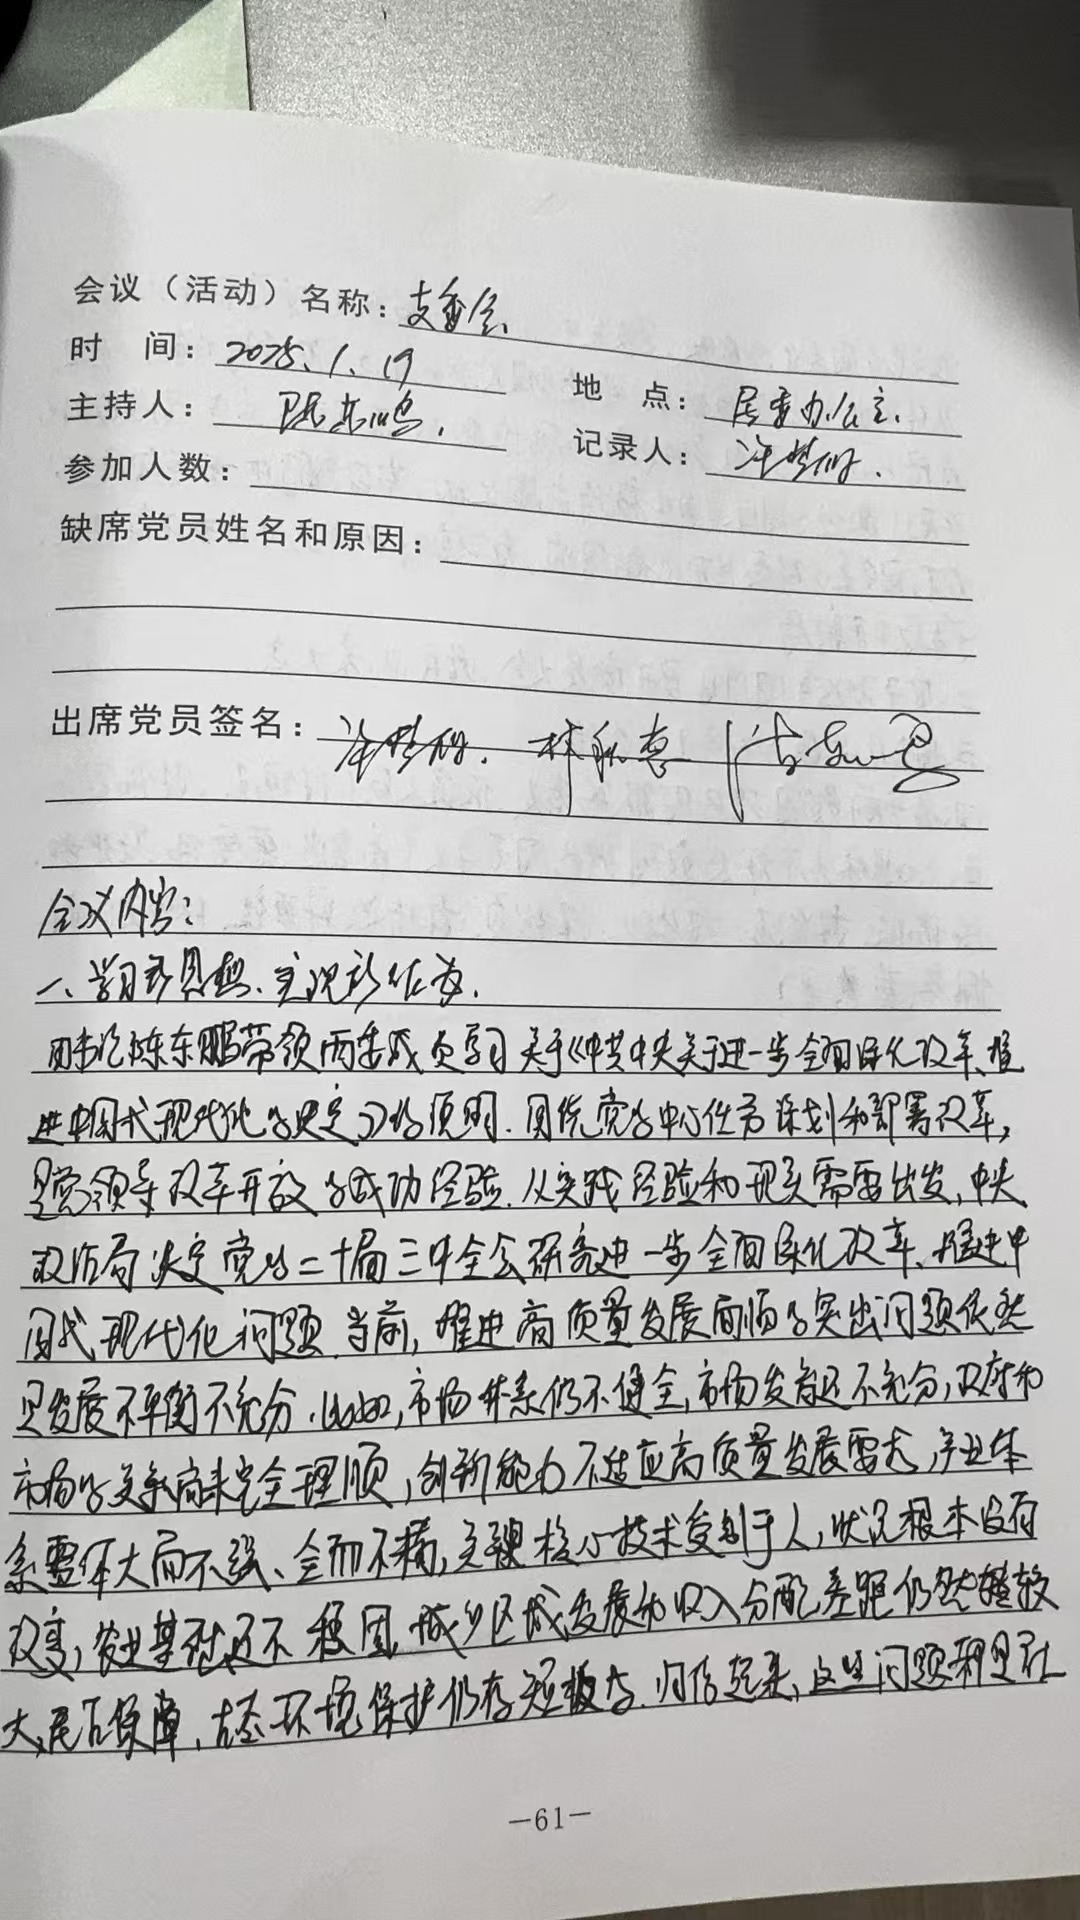 会议（活动）名称：支委会
时 间：2025.1.19
地 点：居委办公室.
主持人：
记录人：
参加人数：
缺席党员姓名和原因：
出席党员签名：
会议内容：
一、学习新思想、实现新作为.
陈东鹏带领两委成员学习关于《中共中央关于进一步全面深化改革、推
进中国式现代化的决定》的说明. 围绕党的中心任务谋划和部署改革，
是党领导改革开放的成功经验. 从实践经验和现实需要出发，中央
政治局决定党的二十届三中全会研究进一步全面深化改革、推进中
国式现代化问题. 当前，推进高质量发展面临的突出问题依然
是发展不平衡不充分. 比如，市场体系仍不健全，市场发育还不充分，政府和
市场的关系尚未完全理顺，创新能力不适应高质量发展要求，产业体
系整体大而不强、全而不精，关键核心技术受制于人，状况根本没有
改变，农业基础还不稳固 城乡区域发展和收入分配差距仍然较
大，民生保障、生态环境保护仍存短板等. 归结起来，这些问题都是社
—61—